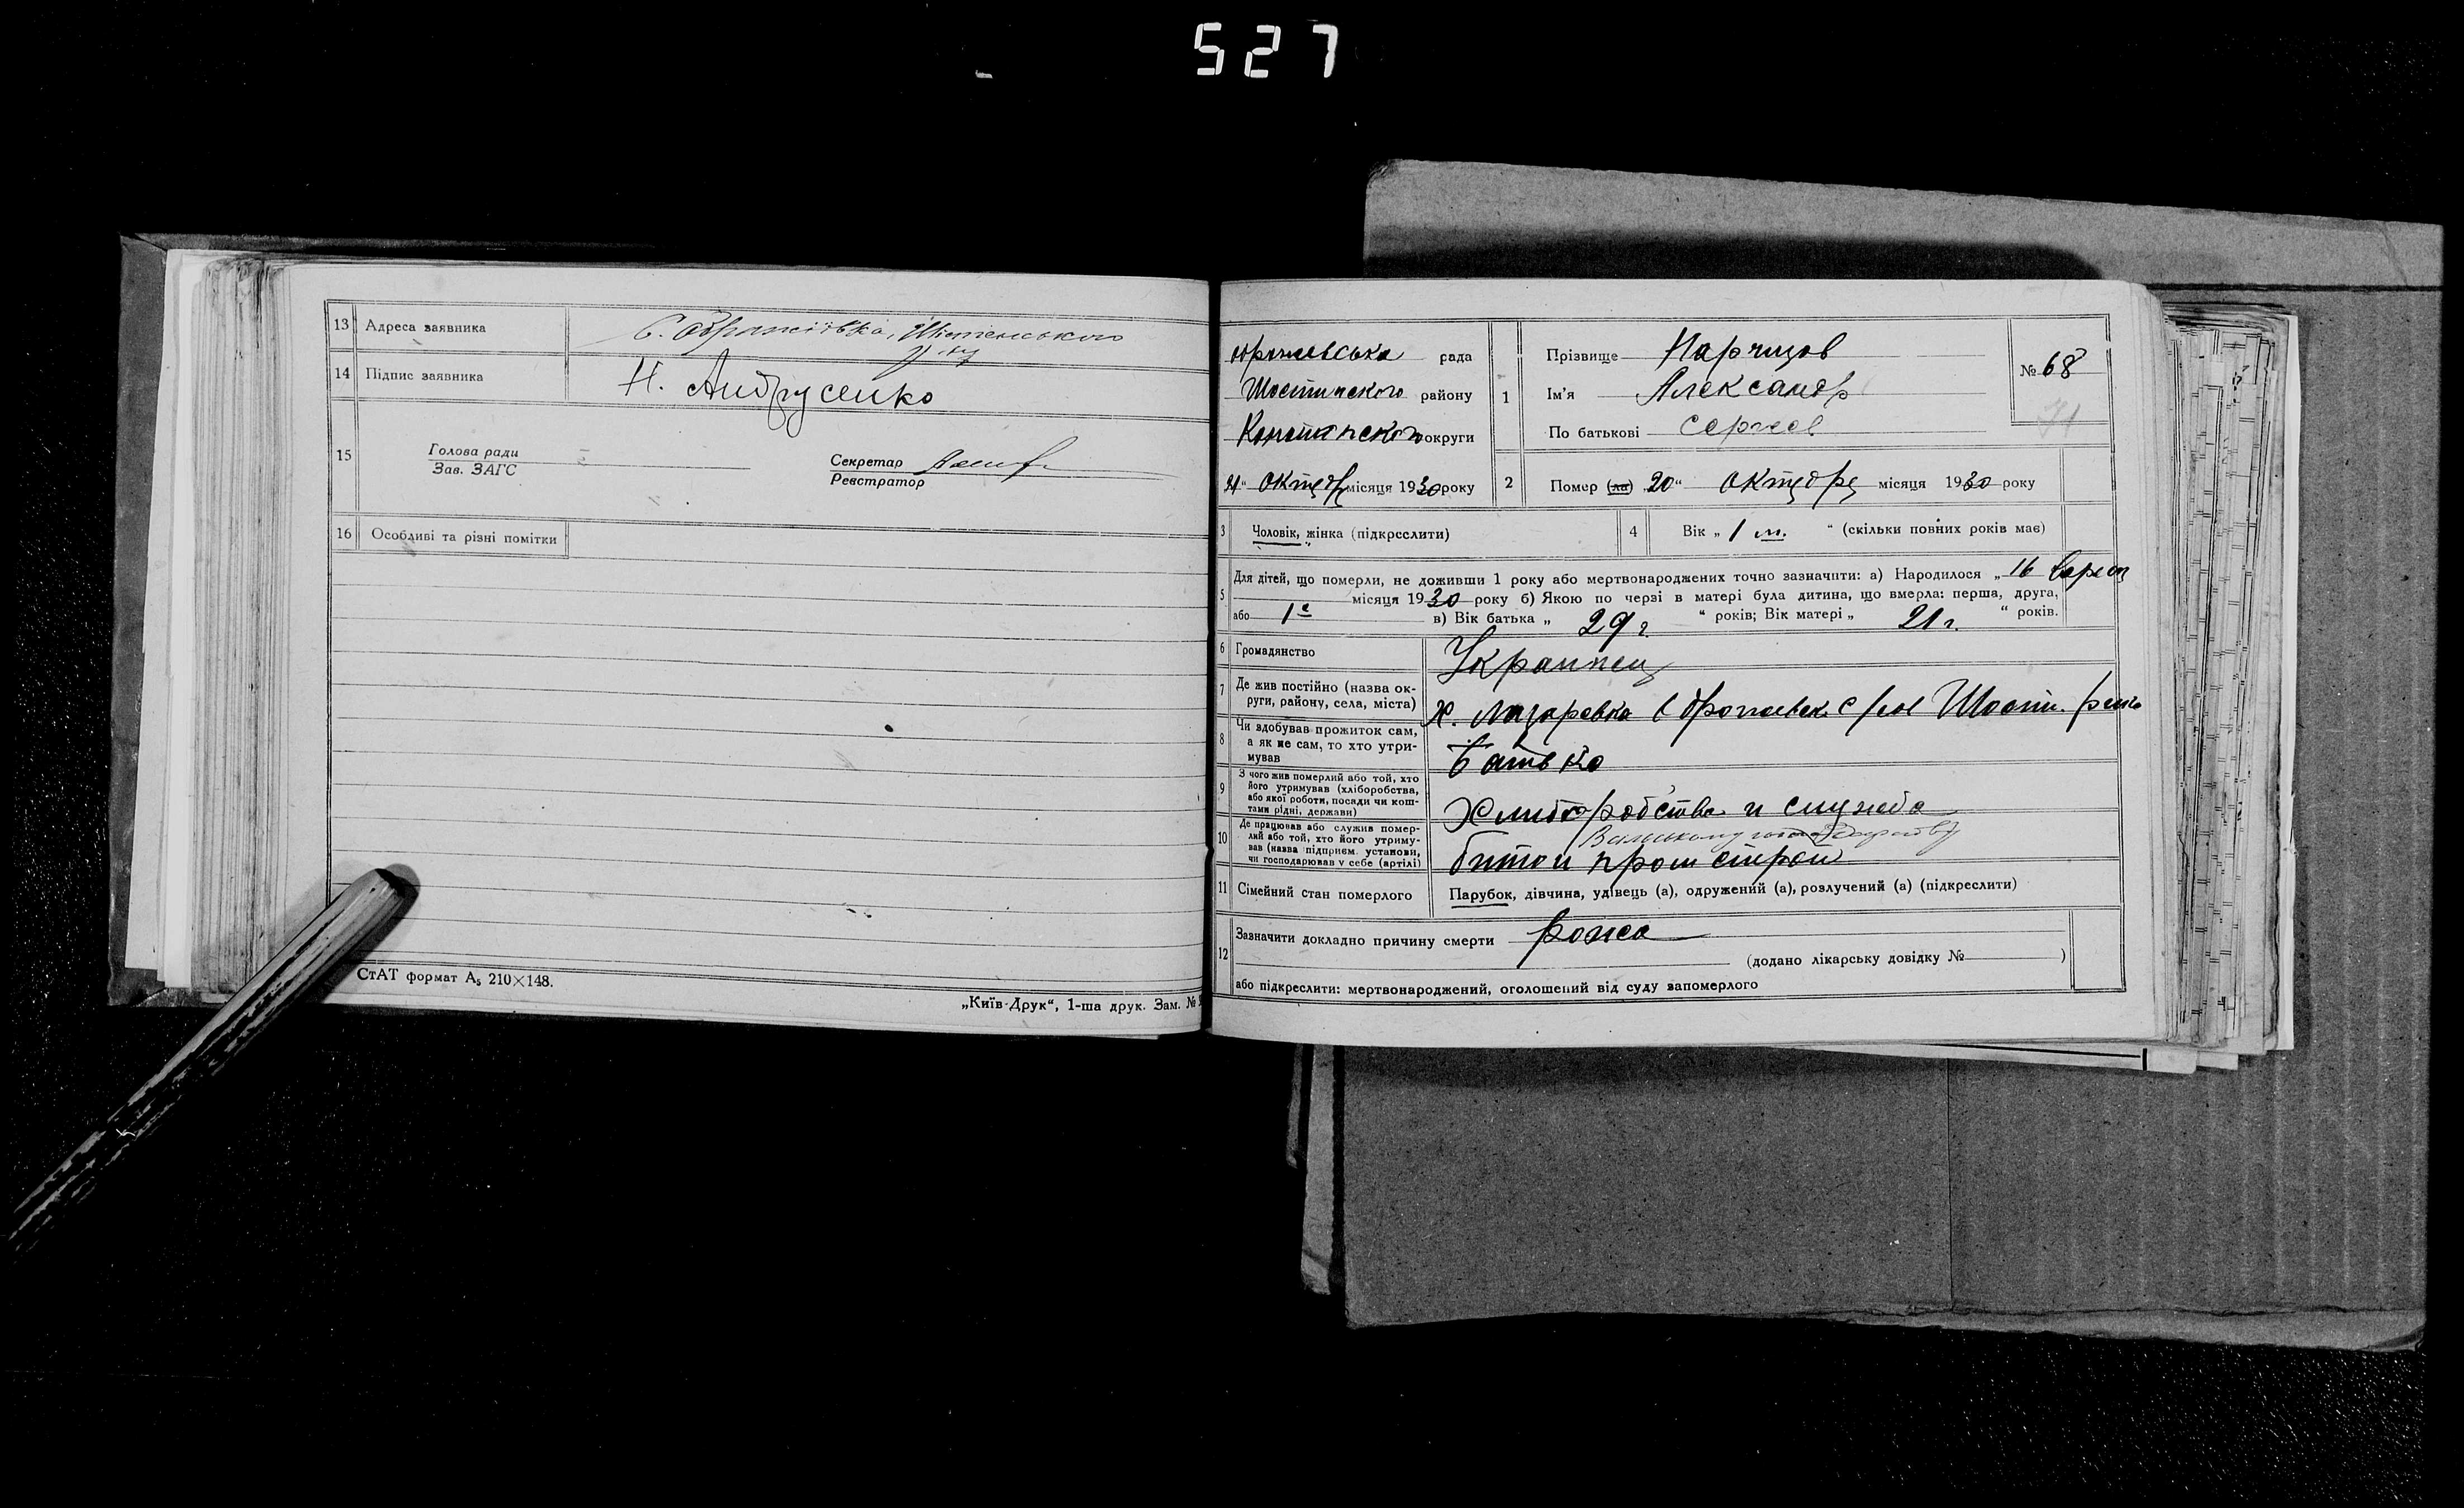 527
13 Адреса заявника
14 Підпис заявника Н. Андрусенко
15 Голова ради
Зав. ЗАГС
Секретар
Реєстратор
16 Особливі та різні помітки
СтАТ формат А5 210×148.
„Київ-Друк“, 1-ша друк. Зам. №
рада
Шостинского району
округи
21 " Октября місяця 1930 року
1 Прізвище
Ім'я Александр
По батькові Сергеев
№ 68
2 Помер (ла) „20“ Октября місяця 1930 року
3 Чоловік, жінка (підкреслити)
4 Вік „ 1 м. “ (скільки повних років має)
5 Для дітей, що померли, не доживши 1 року або мертвонароджених точно зазначити: а) Народилося „16
місяця 1930 року б) Якою по черзі в матері була дитина, що вмерла: перша, друга,
або 1е в) Вік батька „ 29 г. “ років; Вік матері „ 21 г. “ років.
6 Громадянство Украинец
7 Де жив постійно (назва округи, району, села, міста) Х. Лазаревка
8 Чи здобував прожиток сам, а як не сам, то хто утримував Батько
9 З чого жив померлий або той, хто його утримував (хліборобства, або якої роботи, посади чи коштами рідні, держави) и служба
10 Де працював або служив померлий або той, хто його утримував (назва підприєм. установи, чи господарював у себе (артілі)
11 Сімейний стан померлого Парубок, дівчина, удівець (а), одружений (а), розлучений (а) (підкреслити)
12 Зазначити докладно причину смерти рожа
(додано лікарську довідку № )
або підкреслити: мертвонароджений, оголошений від суду запомерлого